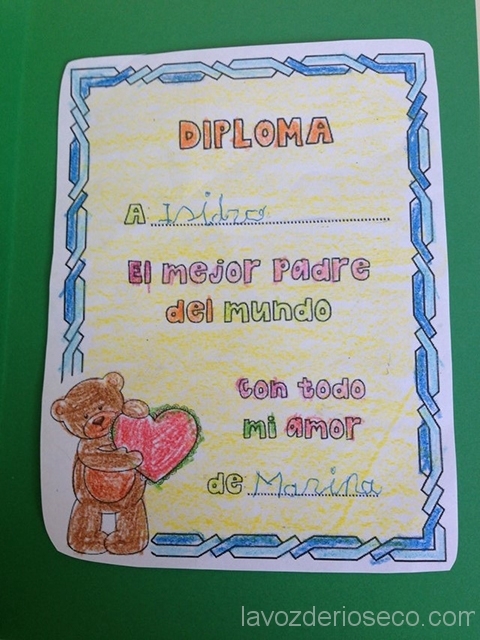 DIPLOMA
A Isidro
El mejor padre
del mundo
con todo
mi amor
de Marina
lavozderioseco.com